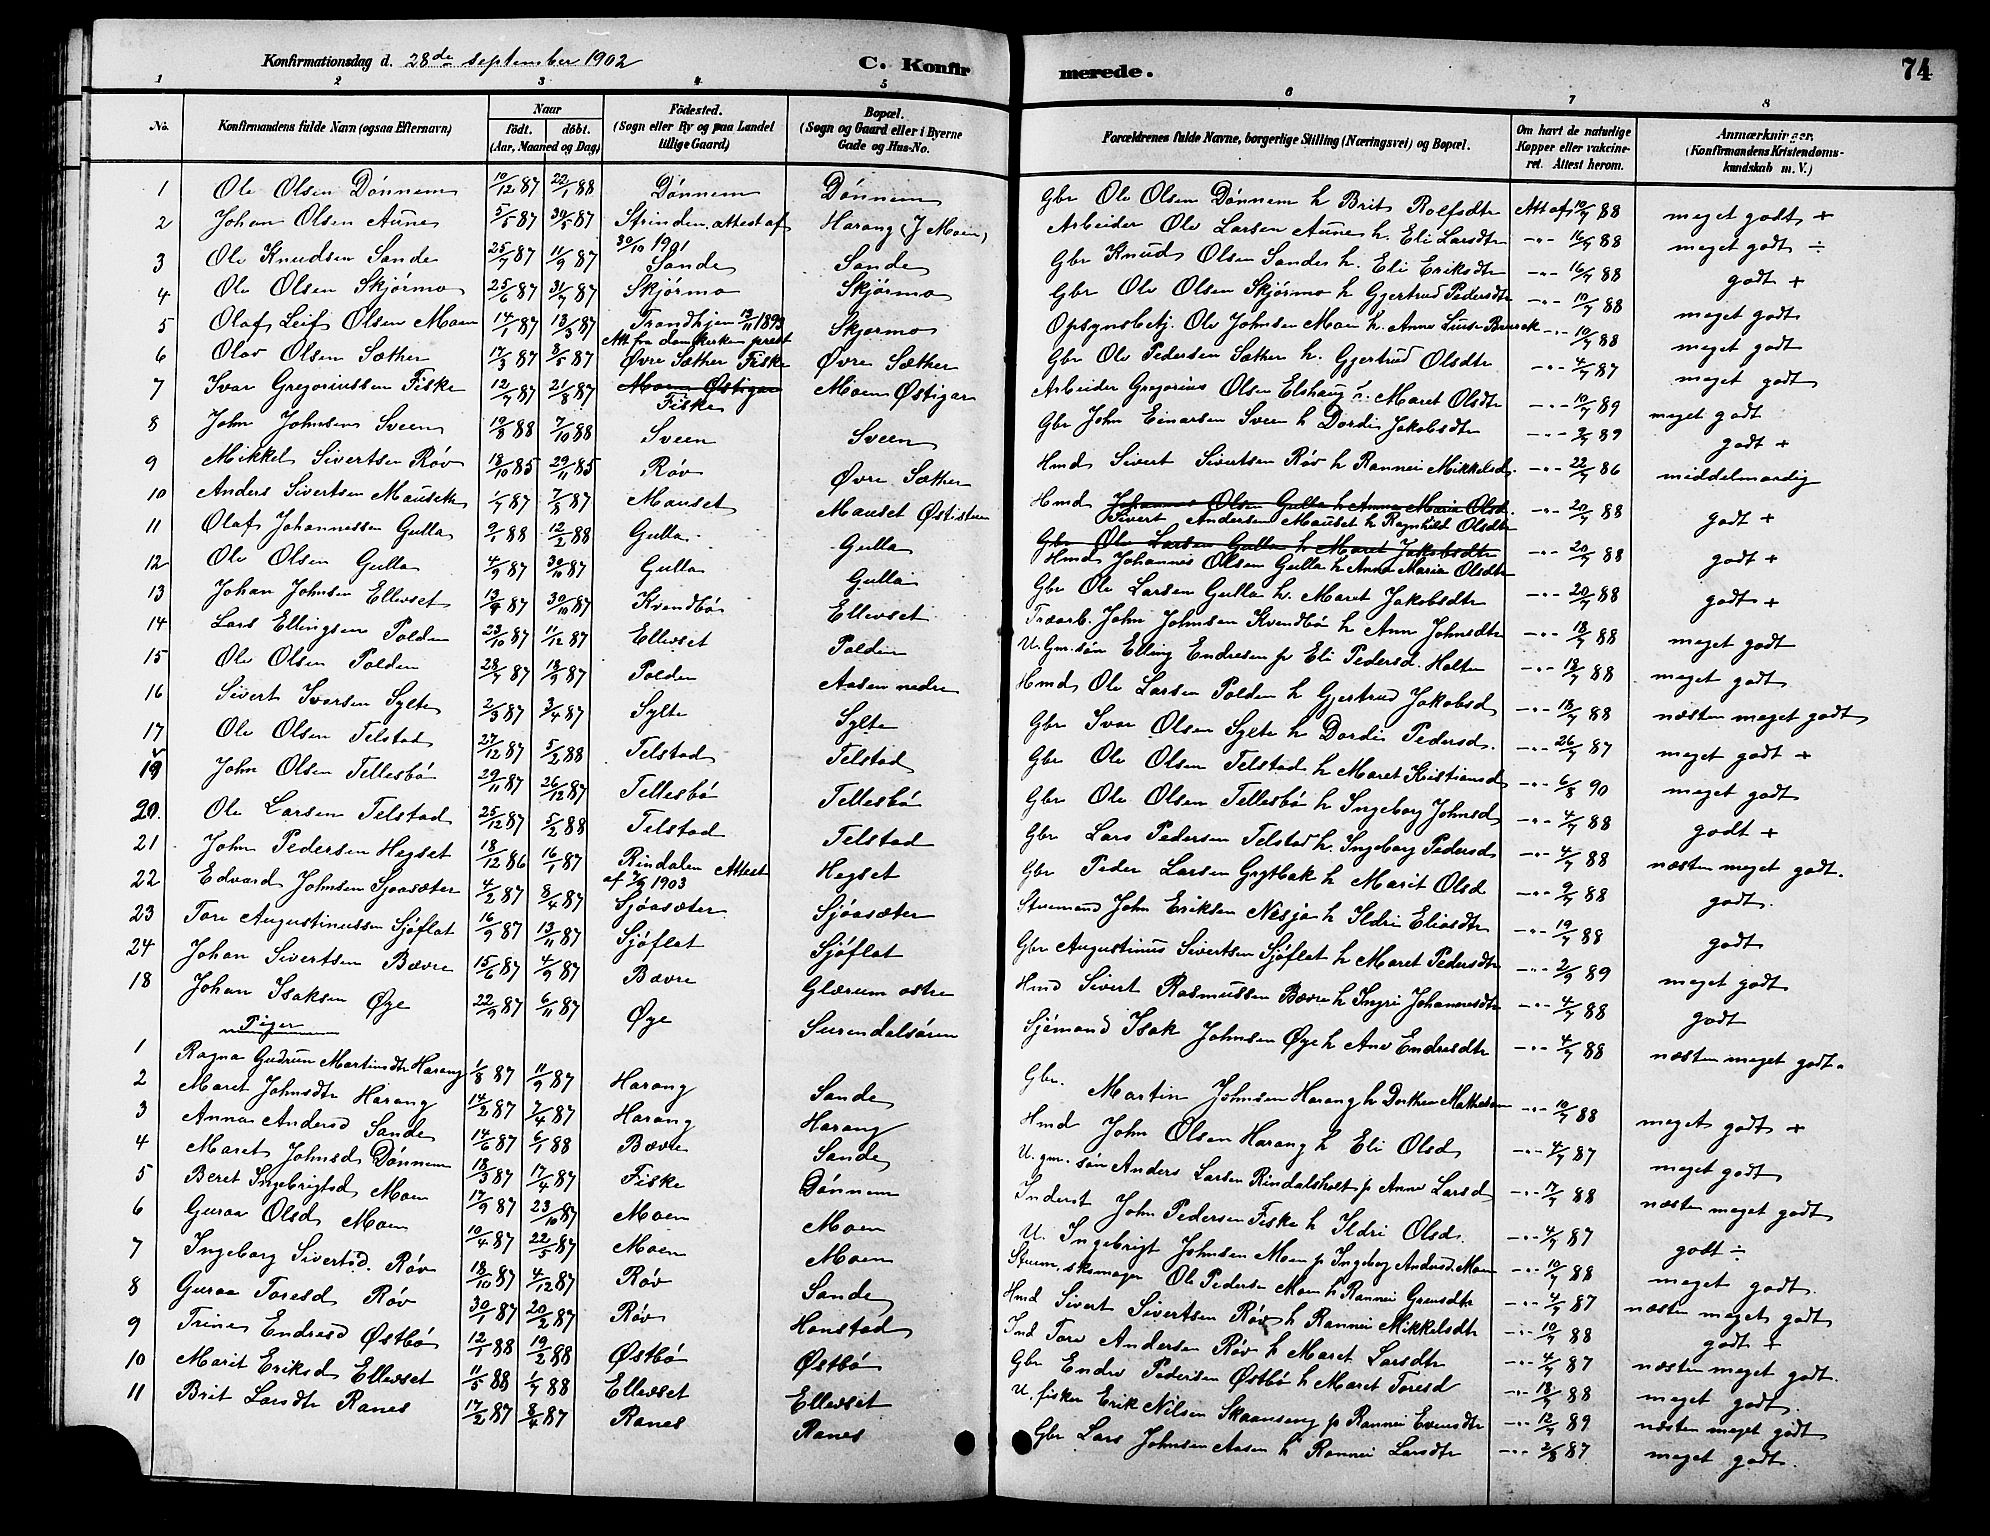 Konfirmationsdag d. 28de september 1902 C. Konfirmerede. 74
1 2 3 4 5 6 7 8
No. Konfirmandens fulde Navn (ogsaa Efternavn) Naar födt. döbt. (Aar, Maaned og Dag) Födested. (Sogn eller By og paa Landet tillige Gaard) Bopæl. (Sogn og Gaard eller i Byerne Gade og Hus-No. Forældrenes fulde Navne, borgerlige Stilling (Næringsvei) og Bopæl. Om havt de naturlige Kopper eller vakcineret. Attest herom. Anmærkninger. (Konfirmandens Kristendomskundskab m. V.)
1 Ole Olsen Dönnem 10/12 87 22/1 88 Dönnem Dönnem Gbr Ole Olsen Dönnem h Brit Rolfsdtr Att af 10/7 88 meget godt +
2 Johan Olsen Aune 5/5 87 30/5 87 Strinden. attest af 30/10 1901 Harang (J Moen) Arbeider Ole Larsen Aune h. Eli Larsdtr -"- 16/9 88 meget godt ÷
3 Ole Knudsen Sande 25/7 87 11/9 87 Sande Sande Gbr Knud Olsen Sande h. Eli Eriksdtr -"- 16/7 88 godt +
4 Ole Olsen Skjörmo 25/6 87 31/7 87 Skjörmo Skjörmo Gbr Ole Olsen Skjörmo h Gjertrud Pedersdtr -"- 10/7 88 meget godt
5 Olaf Leif Olsen Moen 14/1 87 13/3 87 Trondhjem 13/11 1893 Att fra domkerken prest Skjormo Opsynsbetj. Ole Johnsen Moen h. Anne Luise -"- 10/7 88 meget godt
6 Olav Olsen Sæther 17/3 87 8/5 87 Övre Sæther Fiske Övre Sæther Gbr Ole Pedersen Sæther h. Gjertrud Olsdtr -"- 4/7 87 meget godt
7 Ivar Gregoriussen Fiske 12/7 87 21/8 87 Moen Östigar Fiske Moen Östigar Arbeider Gregorius Olsen Elshaug h. Maret Olsdtr -"- 10/7 89 meget godt
8 John Johnsen Sveen 19/8 88 7/10 88 Sveen Sveen Gbr John Einarsen Sveen h Dordi Jakobsdtr -"- 2/7 89 godt +
9 Mikkel Sivertsen Röv 18/10 85 29/11 85 Röv Övre Sæther Hmd Sivert Sivertsen Röv h Rannei Mikkelsd. -"- 22/7 86 middelmaadig
10 Anders Sivertsen Mauseth 1/7 87 7/8 87 Mauset Mauset Östistuen Hmd Johannes Olsen Gulla h Anne Maria Olsd. Sivert Andersen Mauset h Ragnhild Olsdtr -"- 20/7 88 godt +
11 Olaf Johannessen Gulla 9/1 88 12/2 88 Gulla Gulla Gbr Ole Larsen Gulla h Maret Jakobsdtr Hmd Johannes Olsen Gulla h Anne Maria Olsdtr -"- 20/7 88 godt +
12 Ole Olsen Gulla 4/9 87 30/10 87 Gulla Gulla Gbr Ole Larsen Gulla h. Maret Jakobsdtr -"- 20/7 88 godt +
13 Johan Johnsen Ellevset 13/9 87 30/10 87 Kvendbö Ellevset Træarb. John Johnsen Kvendbö h Ane Johnsdtr -"- 18/7 88 meget godt
14 Lars Ellingsen Polden 23/10 87 11/12 87 Ellevset Polden U. Gm. sön Elling Endresen p Eli Pedersd. Holten -"- 18/7 88 meget godt
15 Ole Olsen Polden 28/7 87 18/9 87 Polden Aasen nedre Hmd Ole Larsen Polden h Gjertrud Jakobsd -"- 18/7 88 næsten meget godt
16 Sivert Ivarsen Sylte 2/3 87 3/4 87 Sylte Sylte Gbr Ivar Olsen Sylte h Dordi Pedersd. -"- 26/7 87 meget godt +
17 Ole Olsen Telstad 27/12 87 5/2 88 Telstad Telstad Gbr Ole Olsen Telstad h Maret Kristiansd -"- 6/8 90 meget godt
19 John Olsen Tellesbö 29/11 87 26/12 87 Tellesbö Tellesbö Gbr Ole Olsen Tellesbö h Ingeborg Johnsd -"- 4/7 88 godt +
20. Ole Larsen Telstad 25/12 87 5/2 88 Telstad Telstad Gbr Lars Pedersen Telstad h. Ingeborg Pedersd -"- 4/7 88 næsten meget godt.
21 John Pedersen Hegset 18/12 86 16/1 87 Rindalen Attest af 7/9 1903 Hegset Gbr Peder Larsen Grytbak h Marit Olsd -"- 9/7 88 godt.
22 Edvard Johnsen Sjoasæter 4/2 87 8/4 87 Sjöasæter Sjöasæter Stuemand John Eriksen Nesja h Ildri Eliasdtr -"- 19/7 88 godt
23 Tore Augustinussen Sjöflot 16/9 87 13/11 87 Sjöflot Sjöflot Gbr Augustinus Sivertsen Sjöflot h Maret Pedersdtr -"- 2/9 89 meget godt
24 Johan Sivertsen Bævre 15/6 87 4/9 87 Bævre Glærum östre Hmd Sivert Rasmussen Bævre h Ingri Johannesdtr -"- 4/7 88 godt
18 Johan Isaksen Öye 22/9 87 6/11 87 Öye Surendalsören Sjömand Isak Johnsen Öye h Ane Endresdtr -"- 4/7 88 næsten meget godt.
Piger
1 Ragna Gudrun Martinsdtr Harang 1/8 87 11/9 87 Harang Sande Gbr. Martin Johnsen Harang h Dorthea -"- 10/7 88 meget godt +
2 Maret Johnsdtr Harang 14/2 87 7/4 87 Harang Harang Hmd John Olsen Harang h Eli Olsd -"- 4/7 87 meget godt
3 Anne Andersd Sande 14/6 87 6/1 88 Bævre Sande U. gm. sön Anders Larsen Rindalsholt p Anne Larsd -"- 17/7 88 næsten meget godt
4 Maret Johnsd Dönnem 18/3 87 17/4 87 Fiske Dönnem Inderst John Pedersen Fiske h Ildri Olsd. -"- 4/7 87 godt ÷
5 Beret Ingebrigtsd Moen 17/9 87 23/10 87 Moen Moen U. Ingebrigt Johnsen Moen p Ingeborg Andersd. Moen -"- 10/7 88 meget godt.
6 Guraa Olsd Moen 10/4 87 22/5 87 Moen Moen Stuem. skomager Ole Pedersen Moen h Rannei -"- 4/7 87 næsten meget godt
7 Ingeborg Sivertsd. Röv 18/10 87 4/12 87 Röv Sande Hmd Sivert Sivertsen Röv h Rannei Mikkelsdtr -"- 10/7 88 godt +
8 Guraa Toresd Röv 30/1 87 20/2 87 Röv Honstad Ind Tore Andersen Röv h Maret Larsdtr -"- 4/7 87 næsten meget godt.
9 Trine Endresd Östbö 12/1 88 19/2 88 Östbö Östbö Gbr Endre Pedersen Östbö h Maret Toresd -"- 18/7 88 meget godt.
10 Marit Eriksd Ellevset 11/5 88 1/7 88 Ellevset Ellevset U. fisker Erik Nilsen Skaanseng p Rannei Evensdtr -"- 12/7 89 næsten meget godt
11 Brit Larsdtr Ranes 17/2 87 8/4 87 Ranes Ranes Gbr Lars Johnsen Aasen h Rannei Larsdtr -"- 2/8 87. meget godt.